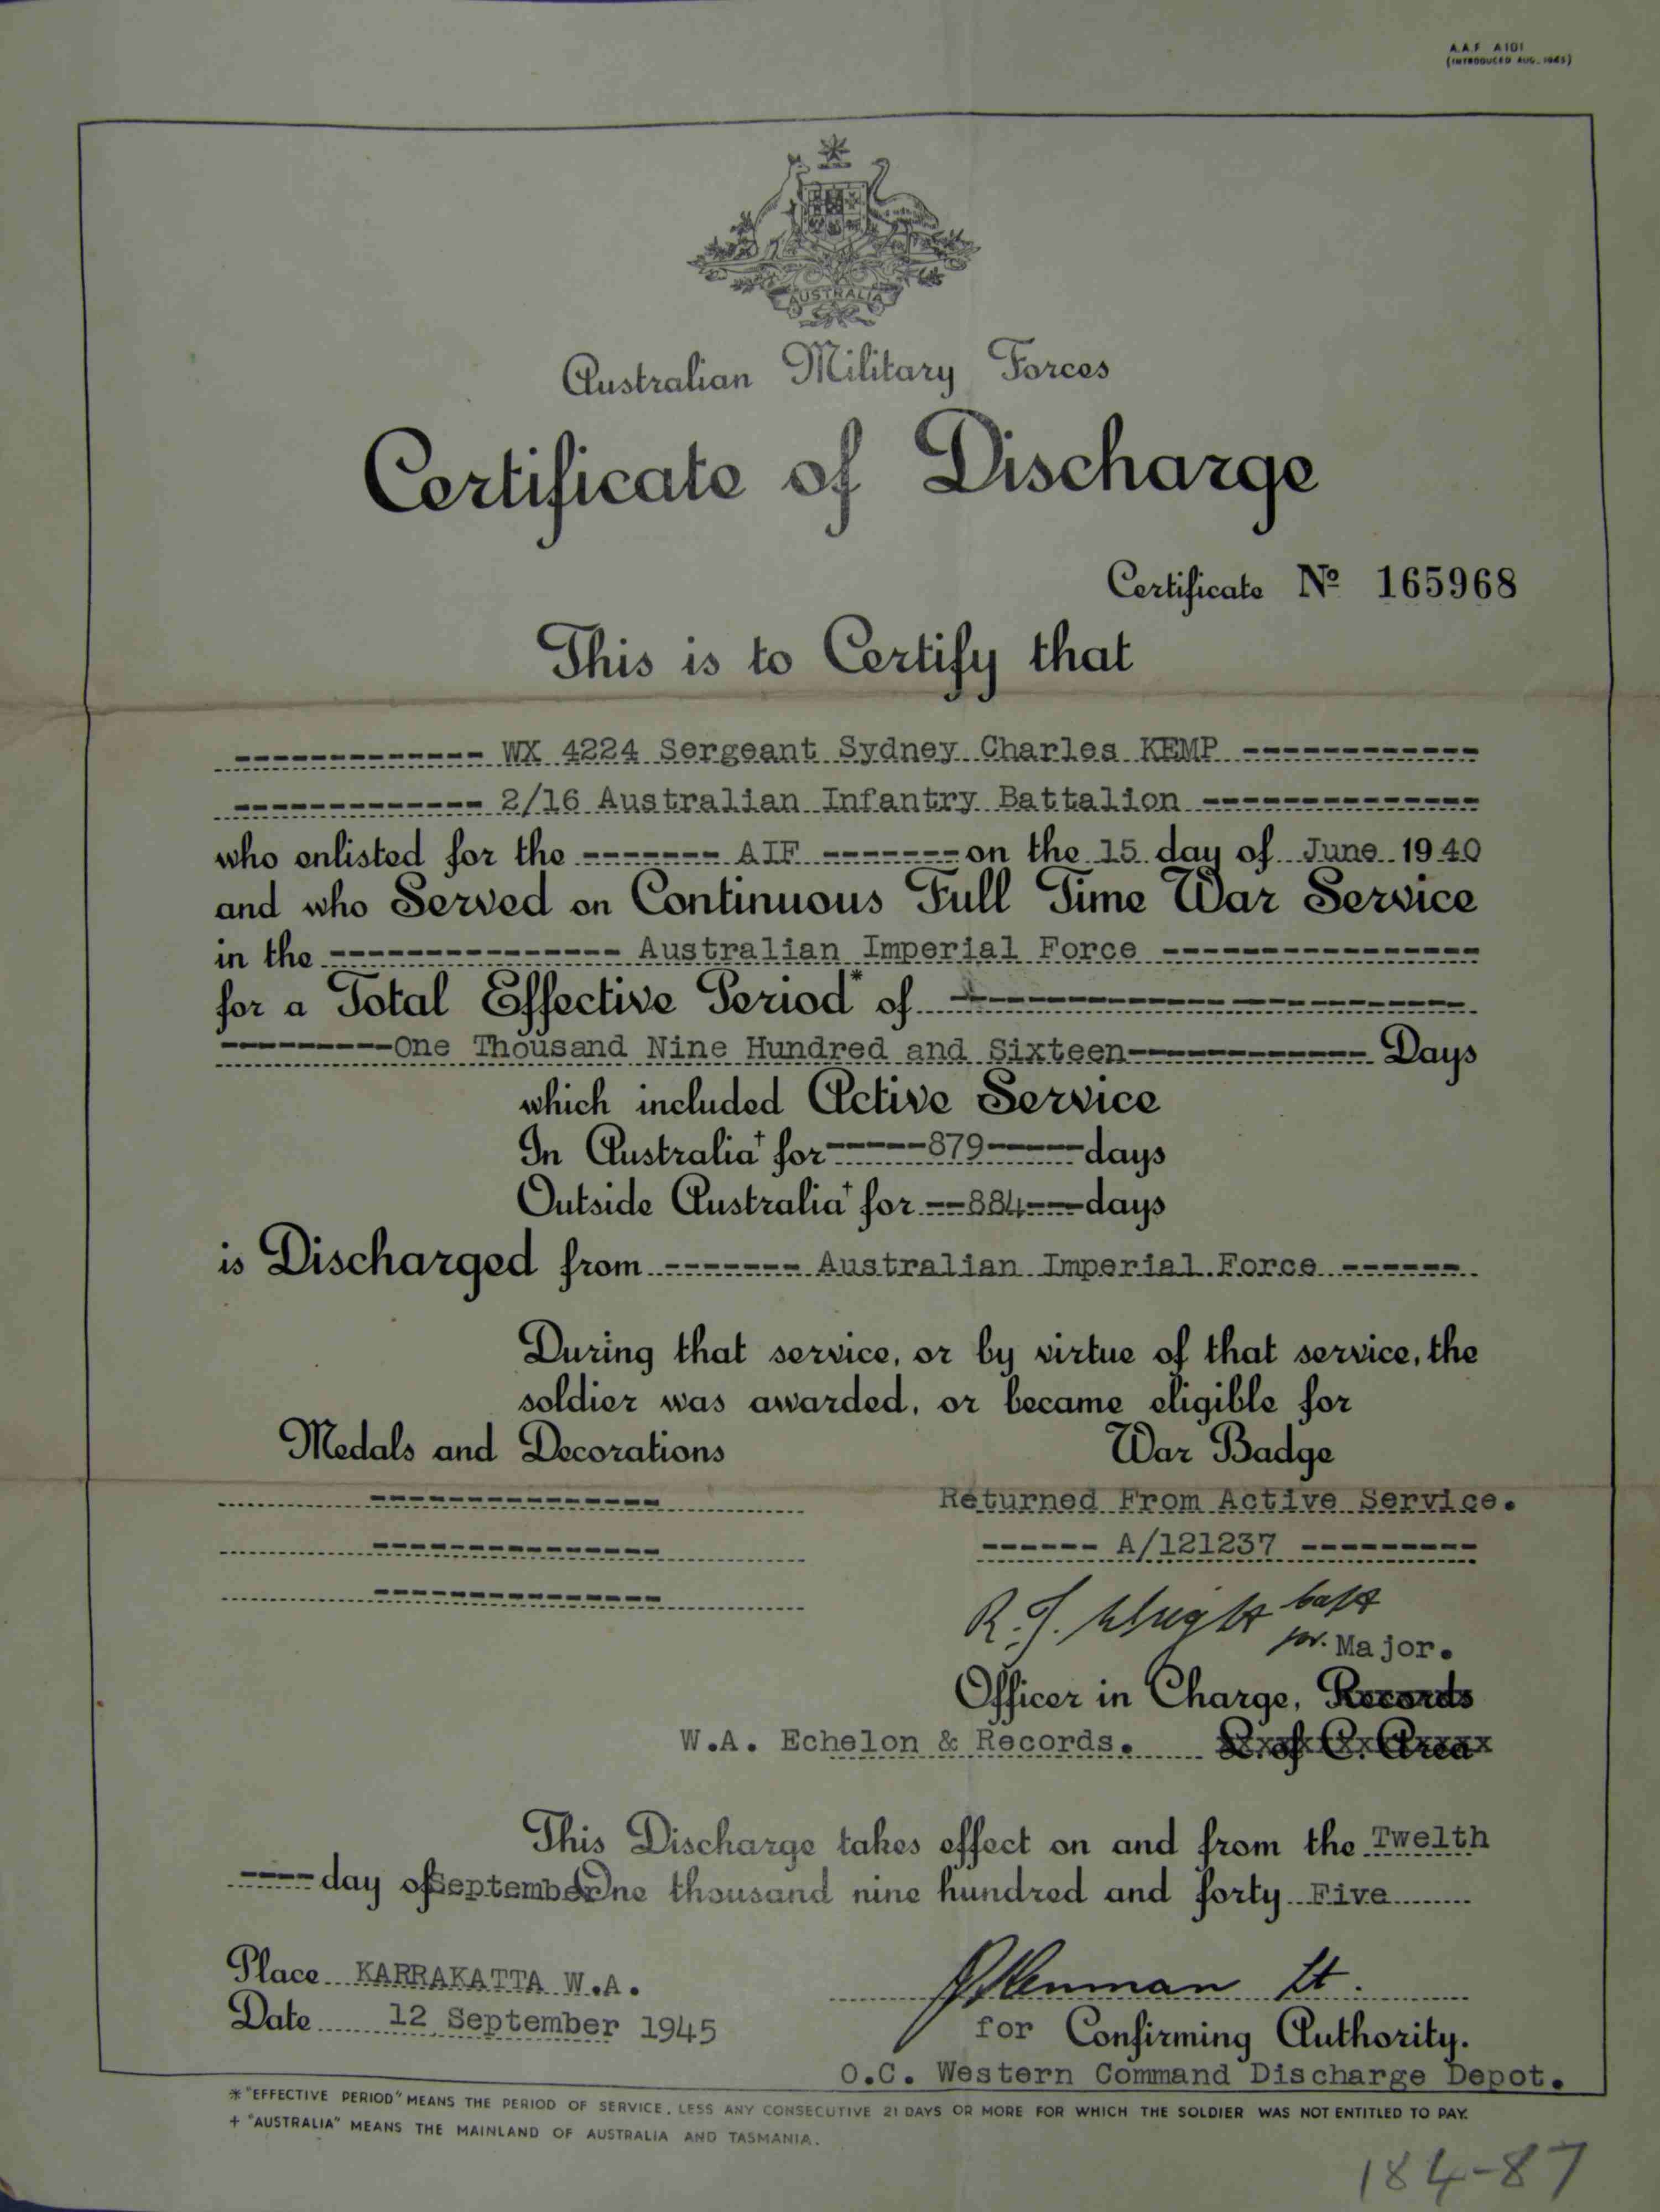 A.A.F A101
(INTRODUCED AUG. 1945)
AUSTRALIA
Australian Military Forces
Certificate of Discharge
Certificate Nº 165968
This is to Certify that
------------- WX 4224 Sergeant Sydney Charles KEMP -------------
------------- 2/16 Australian Infantry Battalion ---------------
who enlisted for the ------- AIF ------- on the 15 day of June 1940
and who Served on Continuous Full Time War Service
in the --------------- Australian Imperial Force ----------------
for a Total Effective Period* of ---------------------------
---------One Thousand Nine Hundred and Sixteen------------ Days
which included Active Service
In Australia+ for -----879----- days
Outside Australia+ for --884--- days
is Discharged from ------- Australian Imperial Force ------
During that service, or by virtue of that service, the
soldier was awarded, or became eligible for
Medals and Decorations War Badge
--------------- Returned From Active Service.
--------------- ------ A/121237 ---------
---------------
R.J. Wright Capt
for. Major.
Officer in Charge, Records
W.A. Echelon & Records. L. of C. Area
This Discharge takes effect on and from the Twelth
---- day of September One thousand nine hundred and forty Five
Place KARRAKATTA W.A. Lt.
Date 12 September 1945 for Confirming Authority.
O.C. Western Command Discharge Depot.
* "EFFECTIVE PERIOD" MEANS THE PERIOD OF SERVICE, LESS ANY CONSECUTIVE 21 DAYS OR MORE FOR WHICH THE SOLDIER WAS NOT ENTITLED TO PAY.
+ "AUSTRALIA" MEANS THE MAINLAND OF AUSTRALIA AND TASMANIA.
184-87